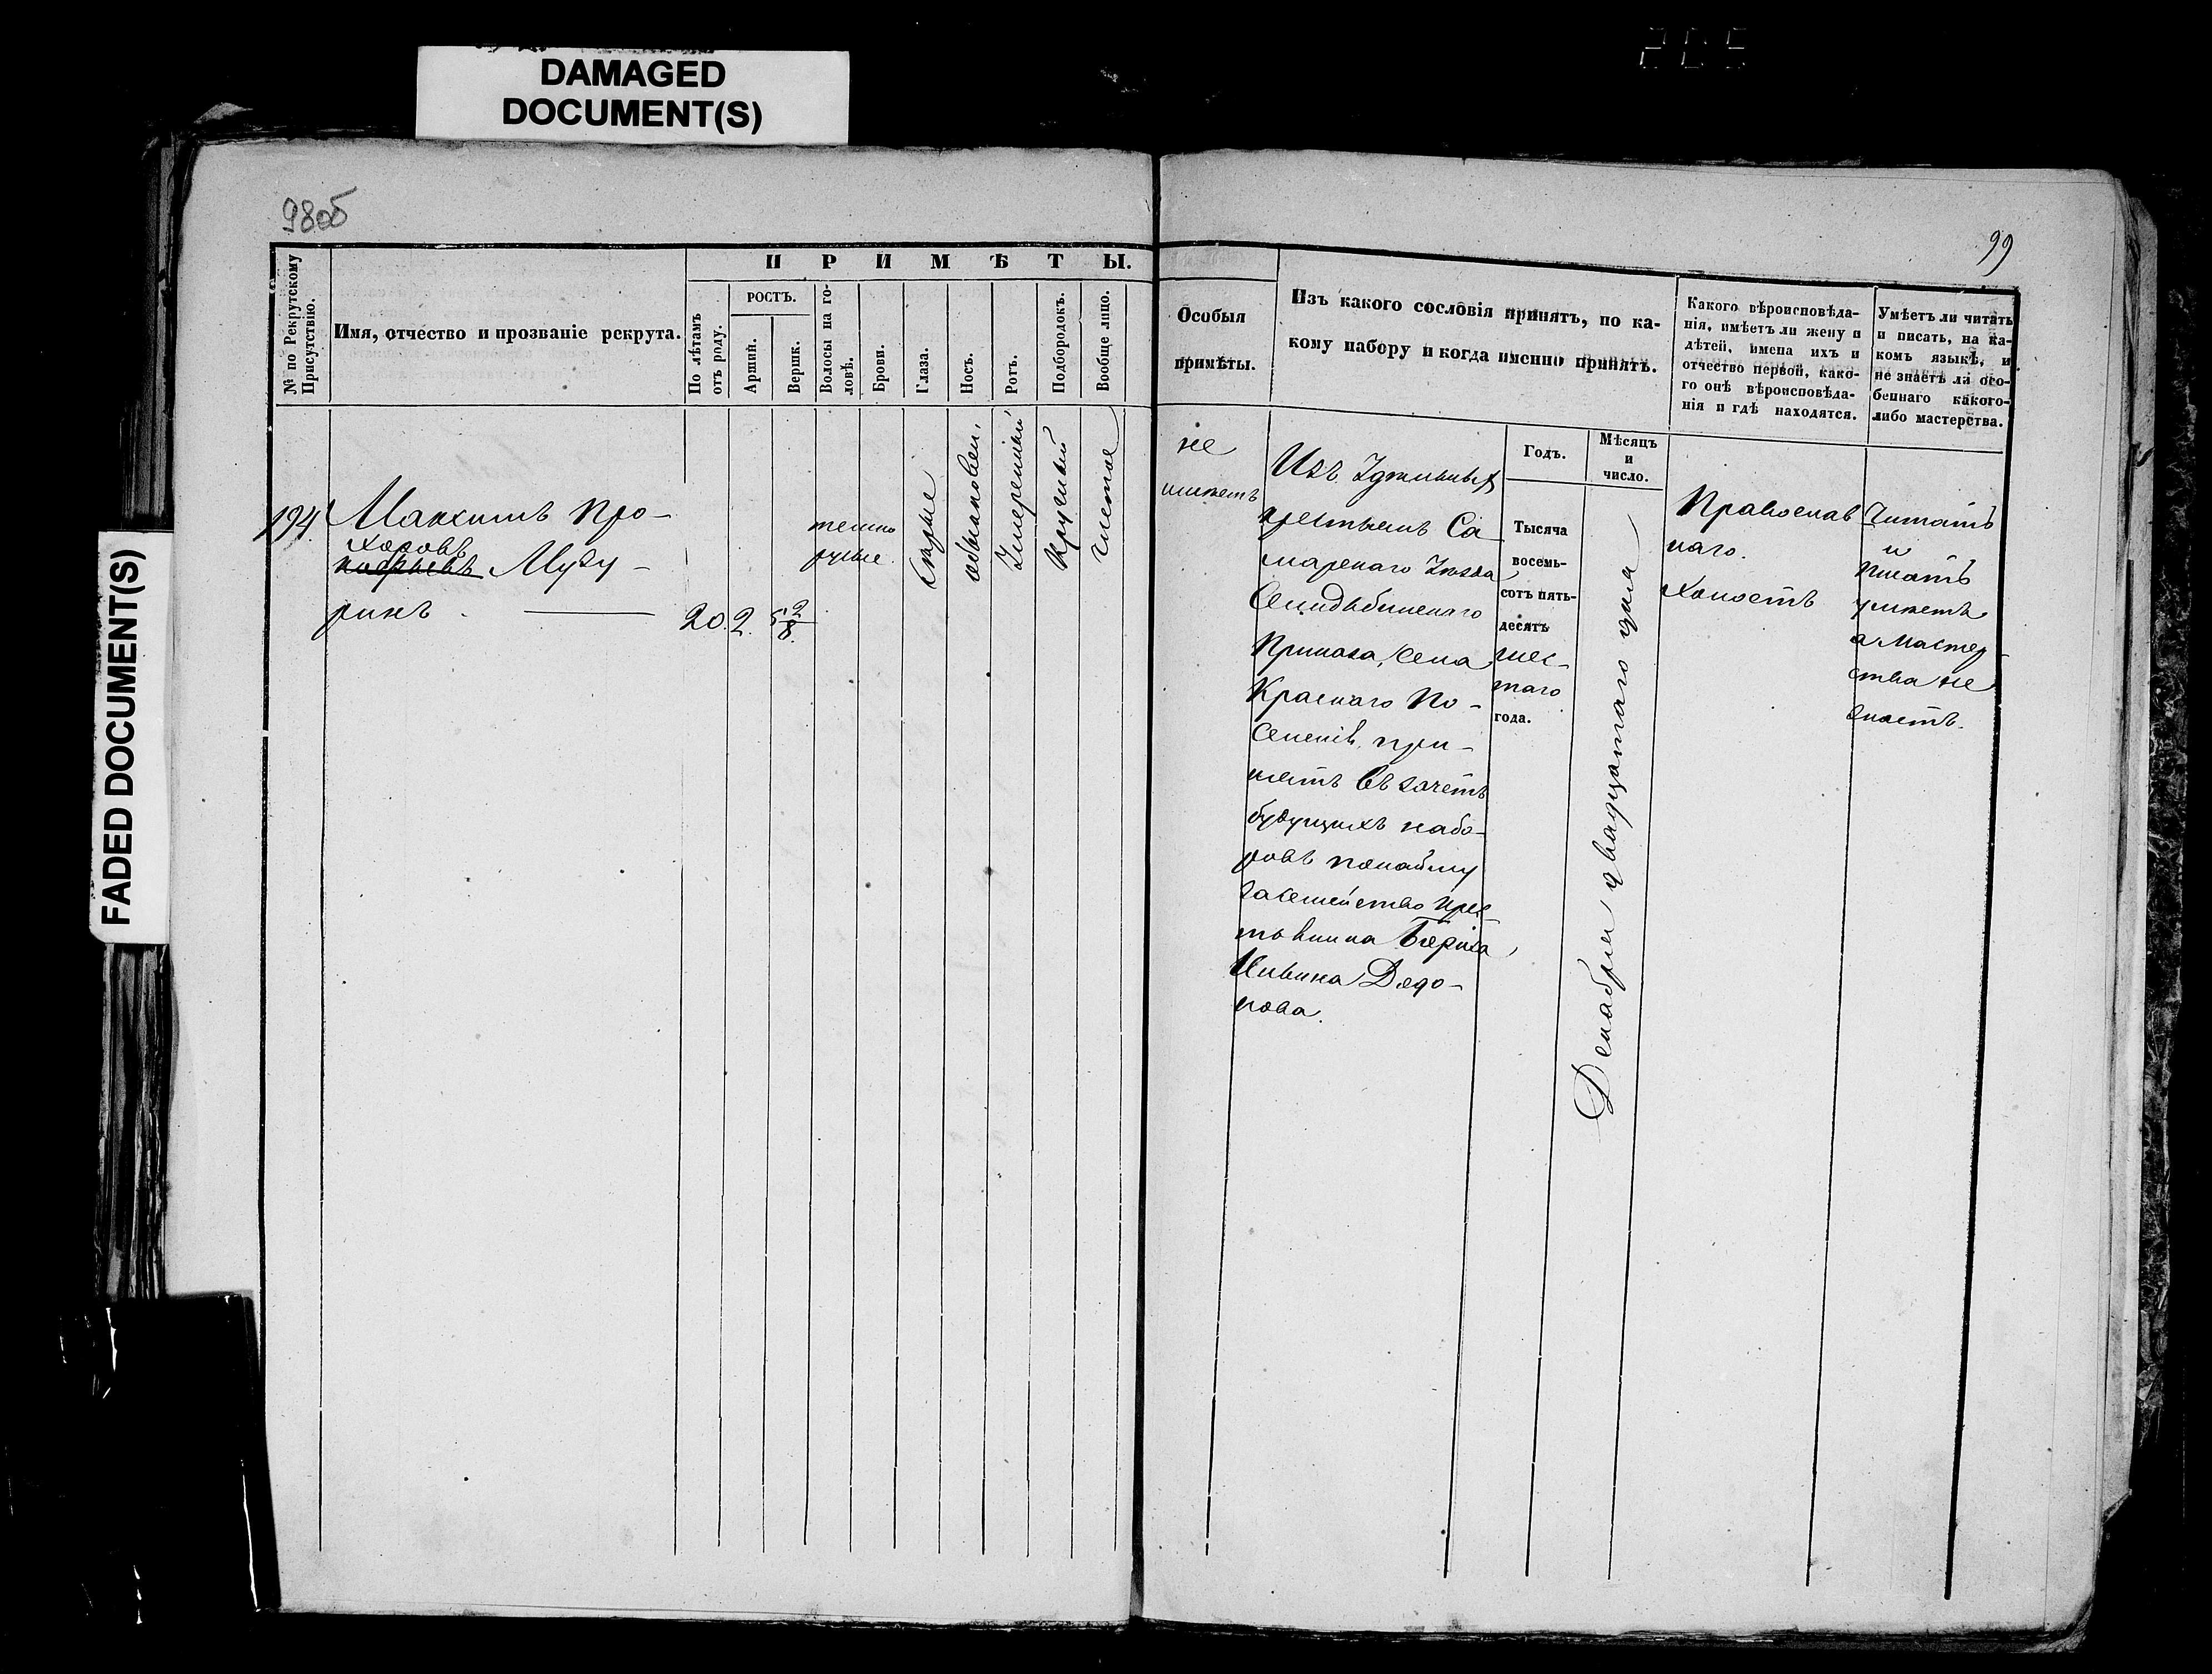 DAMAGED
DOCUMENT(S)
FADED DOCUMENT(S)
98об
99
№ по Рекрутскому Присутствію.
Имя, отчество и прозваніе рекрута.
ПРИМѢТЫ.
По лѣтамъ отъ роду.
РОСТЪ.
Аршин.
Вершк.
Волосы на го-
ловѣ.
Брови.
Глаза.
Носъ.
Ротъ.
Подбородокъ.
Вообще лицо.
Особыя
примѣты.
Изъ какого сословія принятъ, по ка-
кому набору и когда именно принятъ.
Какого вѣроисповѣда-
нія, имѣетъ ли жену и
дѣтей, имена ихъ и
отчество первой, како-
го онѣ вѣроисповѣда-
нія и гдѣ находятся.
Умѣетъ ли читать
и писать, на ка-
комъ языкѣ, и
не знаетъ ли осо-
беннаго какого-
либо мастерства.
Годъ.
Мѣсяцъ
и
число.
194.
Максимъ Про-
хоровъ
Музу-
ринъ.
20.
2.
5 2/8.
темно
русые.
Сѣрые
обыкновен.
Умеренный
Круглый
Чистое
не
имѣетъ
Изъ Удѣльныхъ
крестьянъ Са
марскаго Уѣзда
Приказа, Села
Краснаго По-
селенія, при-
нятъ въ зачетъ
будущихъ набо-
ровъ понайму
за семейство крес-
тьянина
Тысяча
восемь-
сотъ пять-
десятъ
шес-
таго
года.
Декабря двадцатаго дня
Православ
наго.
Холостъ
Читать
и
писать
умѣетъ
а мастер-
ства не
знаетъ.